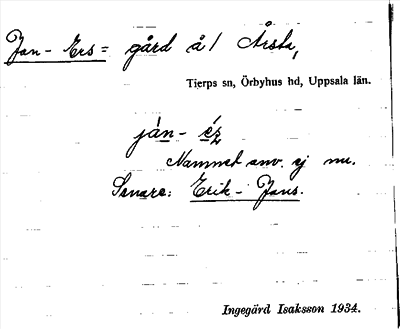 Jan-Ers = gård å/ Årsta,
Tierps sn, Örbyhus hd, Uppsala län.
ján- éz
Namnet anv. ej nu.
Senare: Erik-Jans.
Ingegärd Isaksson 1934.